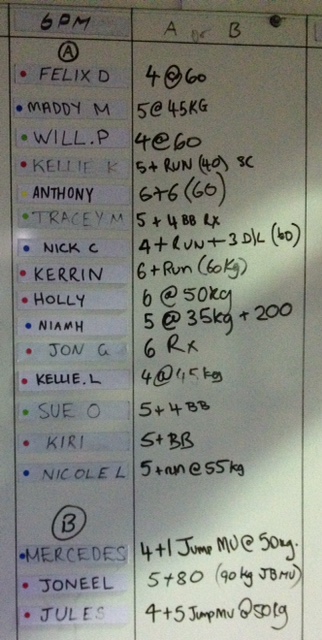 6PM A or B
A
FELIX D 4@60
MADDY M 5@45KG
WILL.P 4@60
KELLIE K 5+RUN (40) SC
ANTHONY 6+6 (60)
TRACEY M 5+4 BB RX
NICK C 4+RUN+3 D/L (60)
KERRIN 6+Run (60kg)
HOLLY 6 @ 50kg
NIAMH 5 @ 35kg + 200
JON G 6 RX
KELLIE.L 4@45kg
SUE O 5+4BB
KIRI 5+BB
NICOLE L 5+run@55kg
B
MERCEDES 4+1 Jump MU@50kg.
JONEEL 5+80 (90kg JBMU)
JULES 4+5 Jump MU@50kg